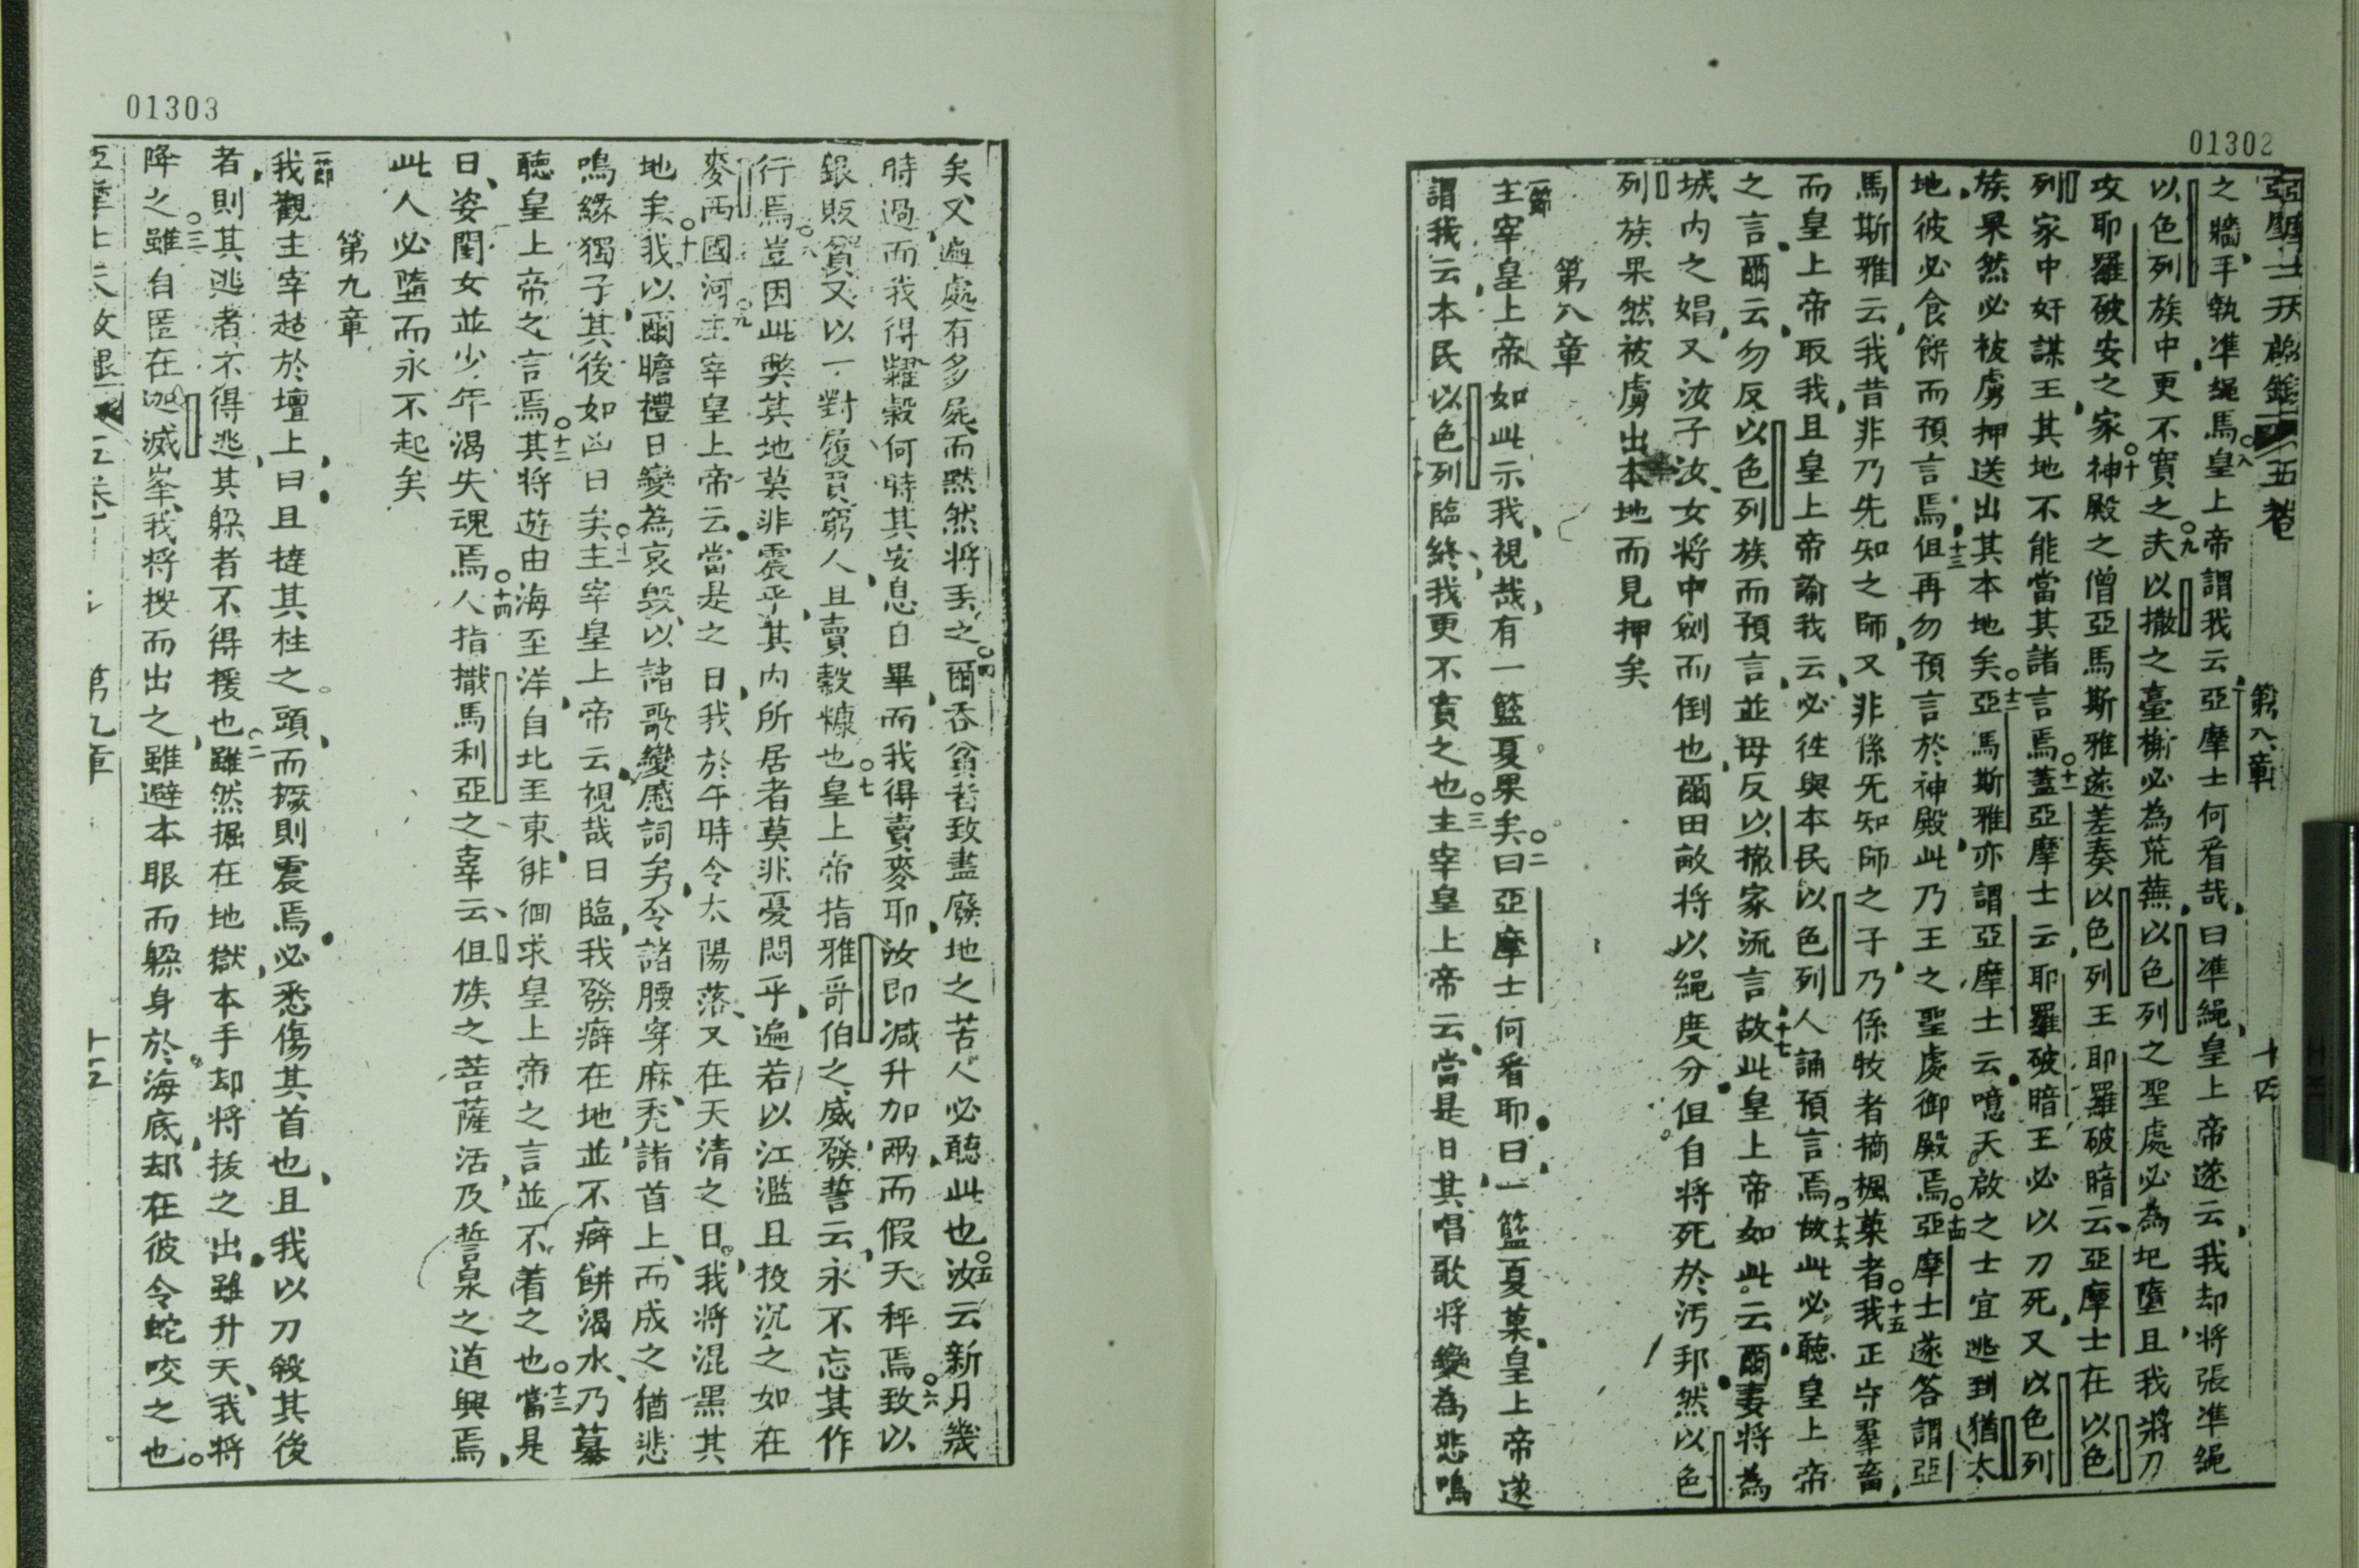 01302
五卷 第八章 十四
之牆手執準繩馬○八皇上帝謂我云亞摩士何看哉曰準繩皇上帝遂云我却將張準繩
以色列族中更不寘之○九夫以撒之臺榭必為荒蕪以色列之聖處必為圮墮且我將刀
攻耶羅破安之家○十神殿之僧亞馬斯雅遂差奏以色列王耶羅破暗云亞摩士在以色
列家中奸謀王其地不能當其諸言焉○十一蓋亞摩士云耶羅破暗王必以刀死又以色列
族果然必被虜押送出其本地矣○十二亞馬斯雅亦謂亞摩士云噫天啟之士宜逃到猶太
地彼必食餅而預言焉○十三但再勿預言於神殿此乃王之聖處御殿焉○十四亞摩士遂答謂亞
馬斯雅云我昔非乃先知之師又非係先知師之子乃係牧者摘楓菓者○十五我正守羣畜
而皇上帝取我且皇上帝諭我云必徃與本民以色列人誦預言焉○十六故此必聽皇上帝
之言爾云勿反以色列族而預言並毋反以撒家流言○十七故此皇上帝如此云爾妻將為
城内之娼又汝子汝女將中劍而倒也爾田畝將以繩度分但自將死於汚邦然以色
列族果然被虜出本地而見押矣
第八章
一節主宰皇上帝如此示我視哉有一籃夏果矣○二曰亞摩士何看耶曰一籃夏菓皇上帝遂
謂我云本民以色列臨終我更不寘之也○三主宰皇上帝云當是日其唱歌將變為悲鳴
01303
矣又遍處有多屍而黙然將丢之○四爾吞貧者致盡廢地之苦人必聽此也○五汝云新月幾
時過而我得糶穀何時其安息日畢而我得賣麥耶汝即減升加兩而假天秤焉○六致以
銀販貧又以一對履買窮人且賣穀糠也○七皇上帝指雅哥伯之威發誓云永不忘其作
行焉○八豈因此獘其地莫非震乎其内所居者莫非憂悶乎遍若以江濫且投沉之如在
麥西國河○九主宰皇上帝云當是之日我於午時令太陽落又在天清之日我將混黑其
地矣○十我以爾瞻禮日變為哀毁以諸歌變慼詞矣令諸腰穿麻禿諸首上而成之猶悲
鳴緣獨子其後如凶日矣○十一主宰皇上帝云視哉日臨我發癖在地並不癖餅渴水乃慕
聽皇上帝之言焉○十二其將遊由海至洋自北至東徘徊求皇上帝之言並不着之也○十三當是
日姿閨女並少年渴失魂焉○十四人指撒馬利亞之辜云但族之菩薩活及誓泉之道興焉
此人必墮而永不起矣
第九章
一節我觀主宰起於壇上曰且撻其柱之頭而撼則震焉必悉傷其首也且我以刀殺其後
者則其逃者不得逃其躲者不得援也○二雖然掘在地獄本手却將拔之出雖升天我將
降之○三雖自匿在迦滅峯我將搜而出之雖避本眼而躲身於海底却在彼令蛇咬之也
五卷 第九章 十五